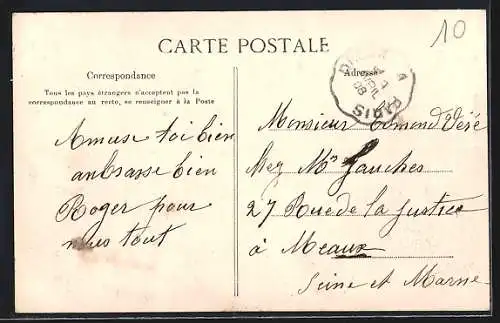 10
CARTE POSTALE
Correspondance
Tous les pays étrangers n'acceptent pas la
correspondance au recto, se renseigner à la Poste
Adresse
PARIS
Amuse toi bien
anbrasse bien
Roger pour
nous tout
Monsieur Edmond Véré
Chez Mr Gauches
27 Rue de la Justice
à Meaux
Seine et Marne